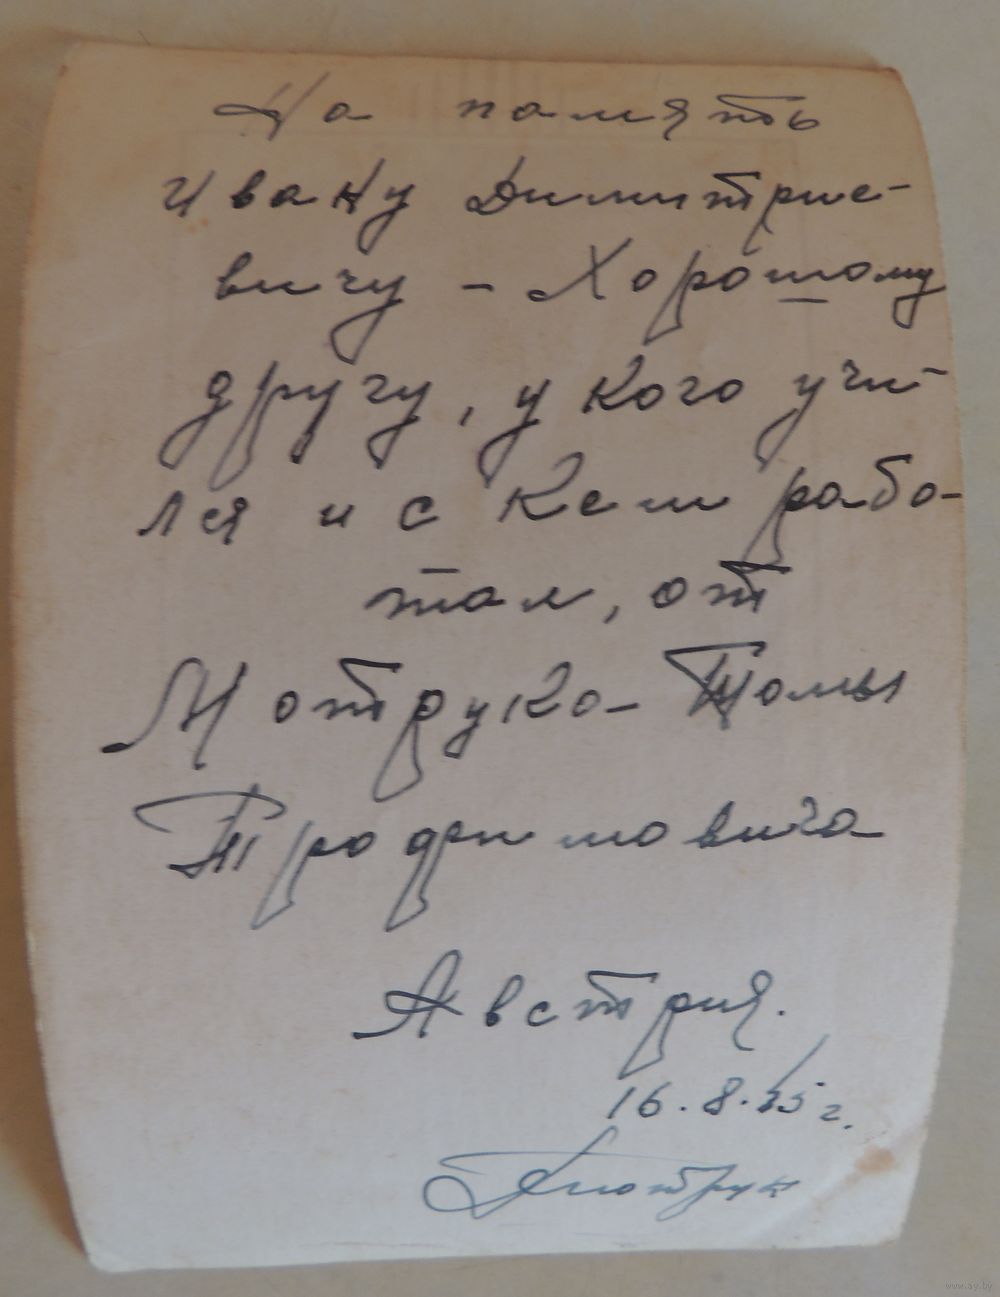 На память
Ивану Димитрие-
вичу - Хорошому
другу, у кого учи-
лся и с кем рабо-
тал, от
Мотрука- Томы
Трофимовича
Австрия.
16.8. г.
www.ay.by